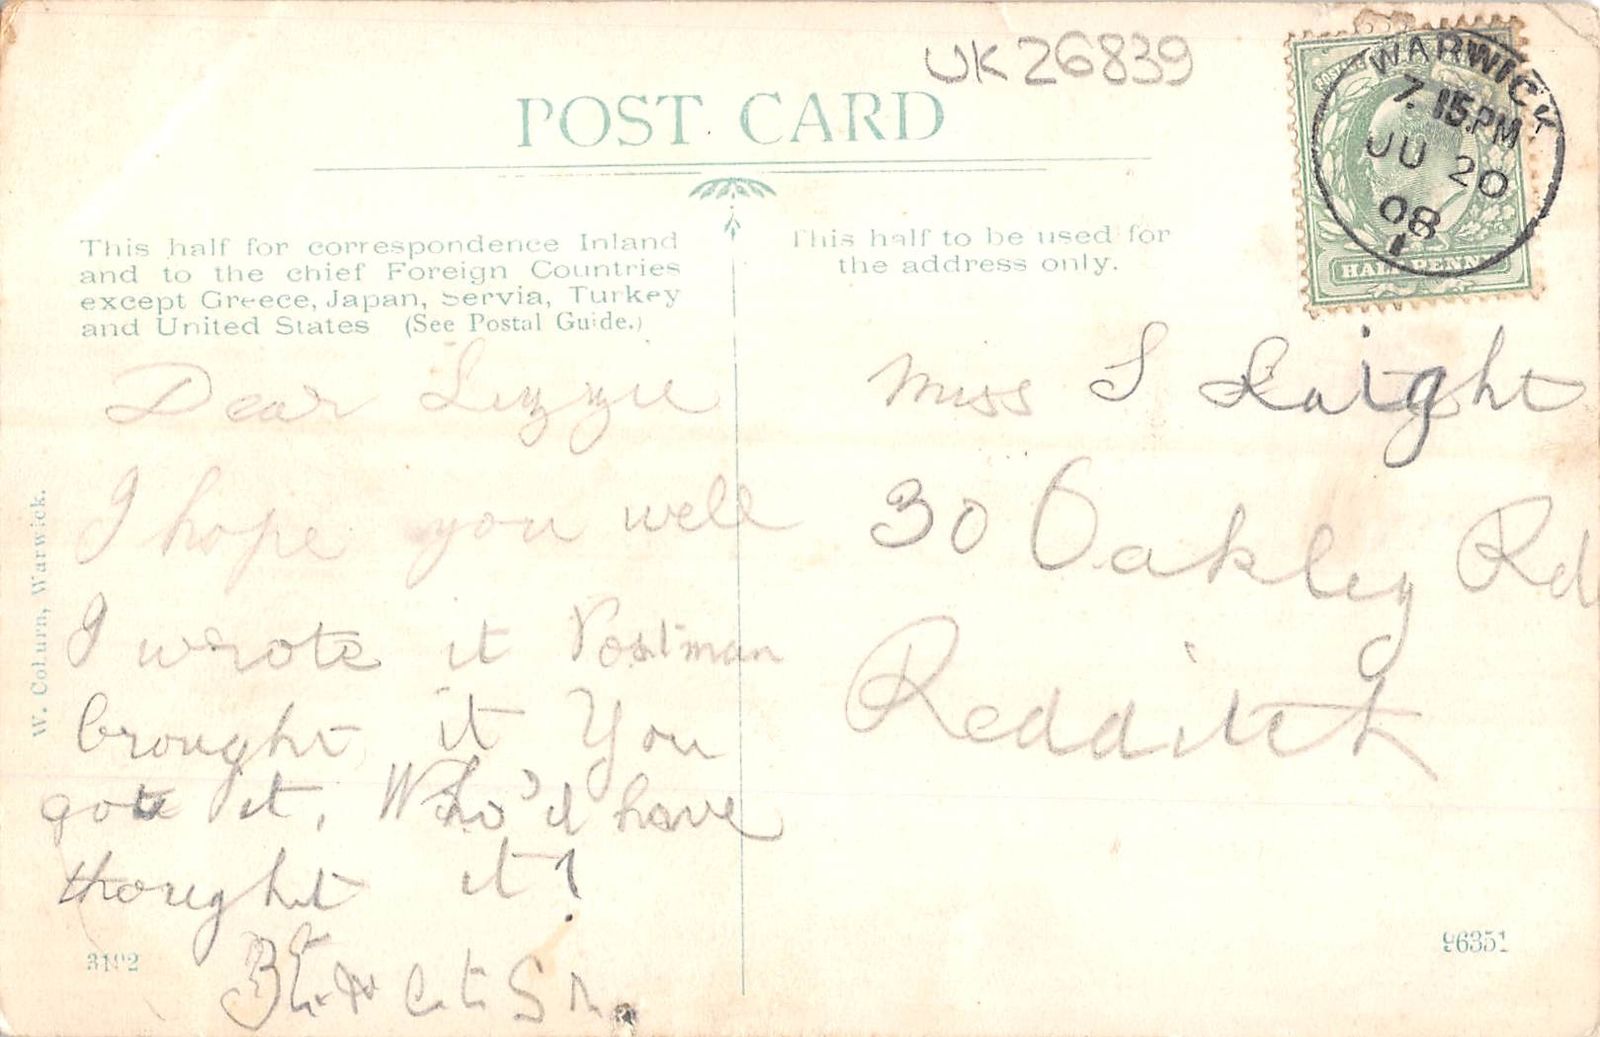 UK 26839
POST CARD
This half for correspondence Inland
and to the chief Foreign Countries
except Greece, Japan, Servia, Turkey
and United States (See Postal Guide.)
This half to be used for
the address only.
WARWICK
7.15.PM
JU 20
08
HALF PENNY
Dear Lizzie
I hope you well
I wrote it Postman
brought it You
got it. Who'd have
thought it!
Miss Laight
30 Oakley Rd
Redditch
W. Coburn, Warwick.
96351